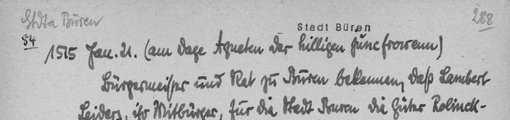 StdtA Büren
Stadt Büren
288
84
1515 Jan. 21. (am dage Agneten der hilligen juncfrowenn)
Bürgermeister und Rat zu Buren bekennen, daß Lambert
Leiders, ihr Mitbürger, für die Stadt Buren die Güter Rolinck-